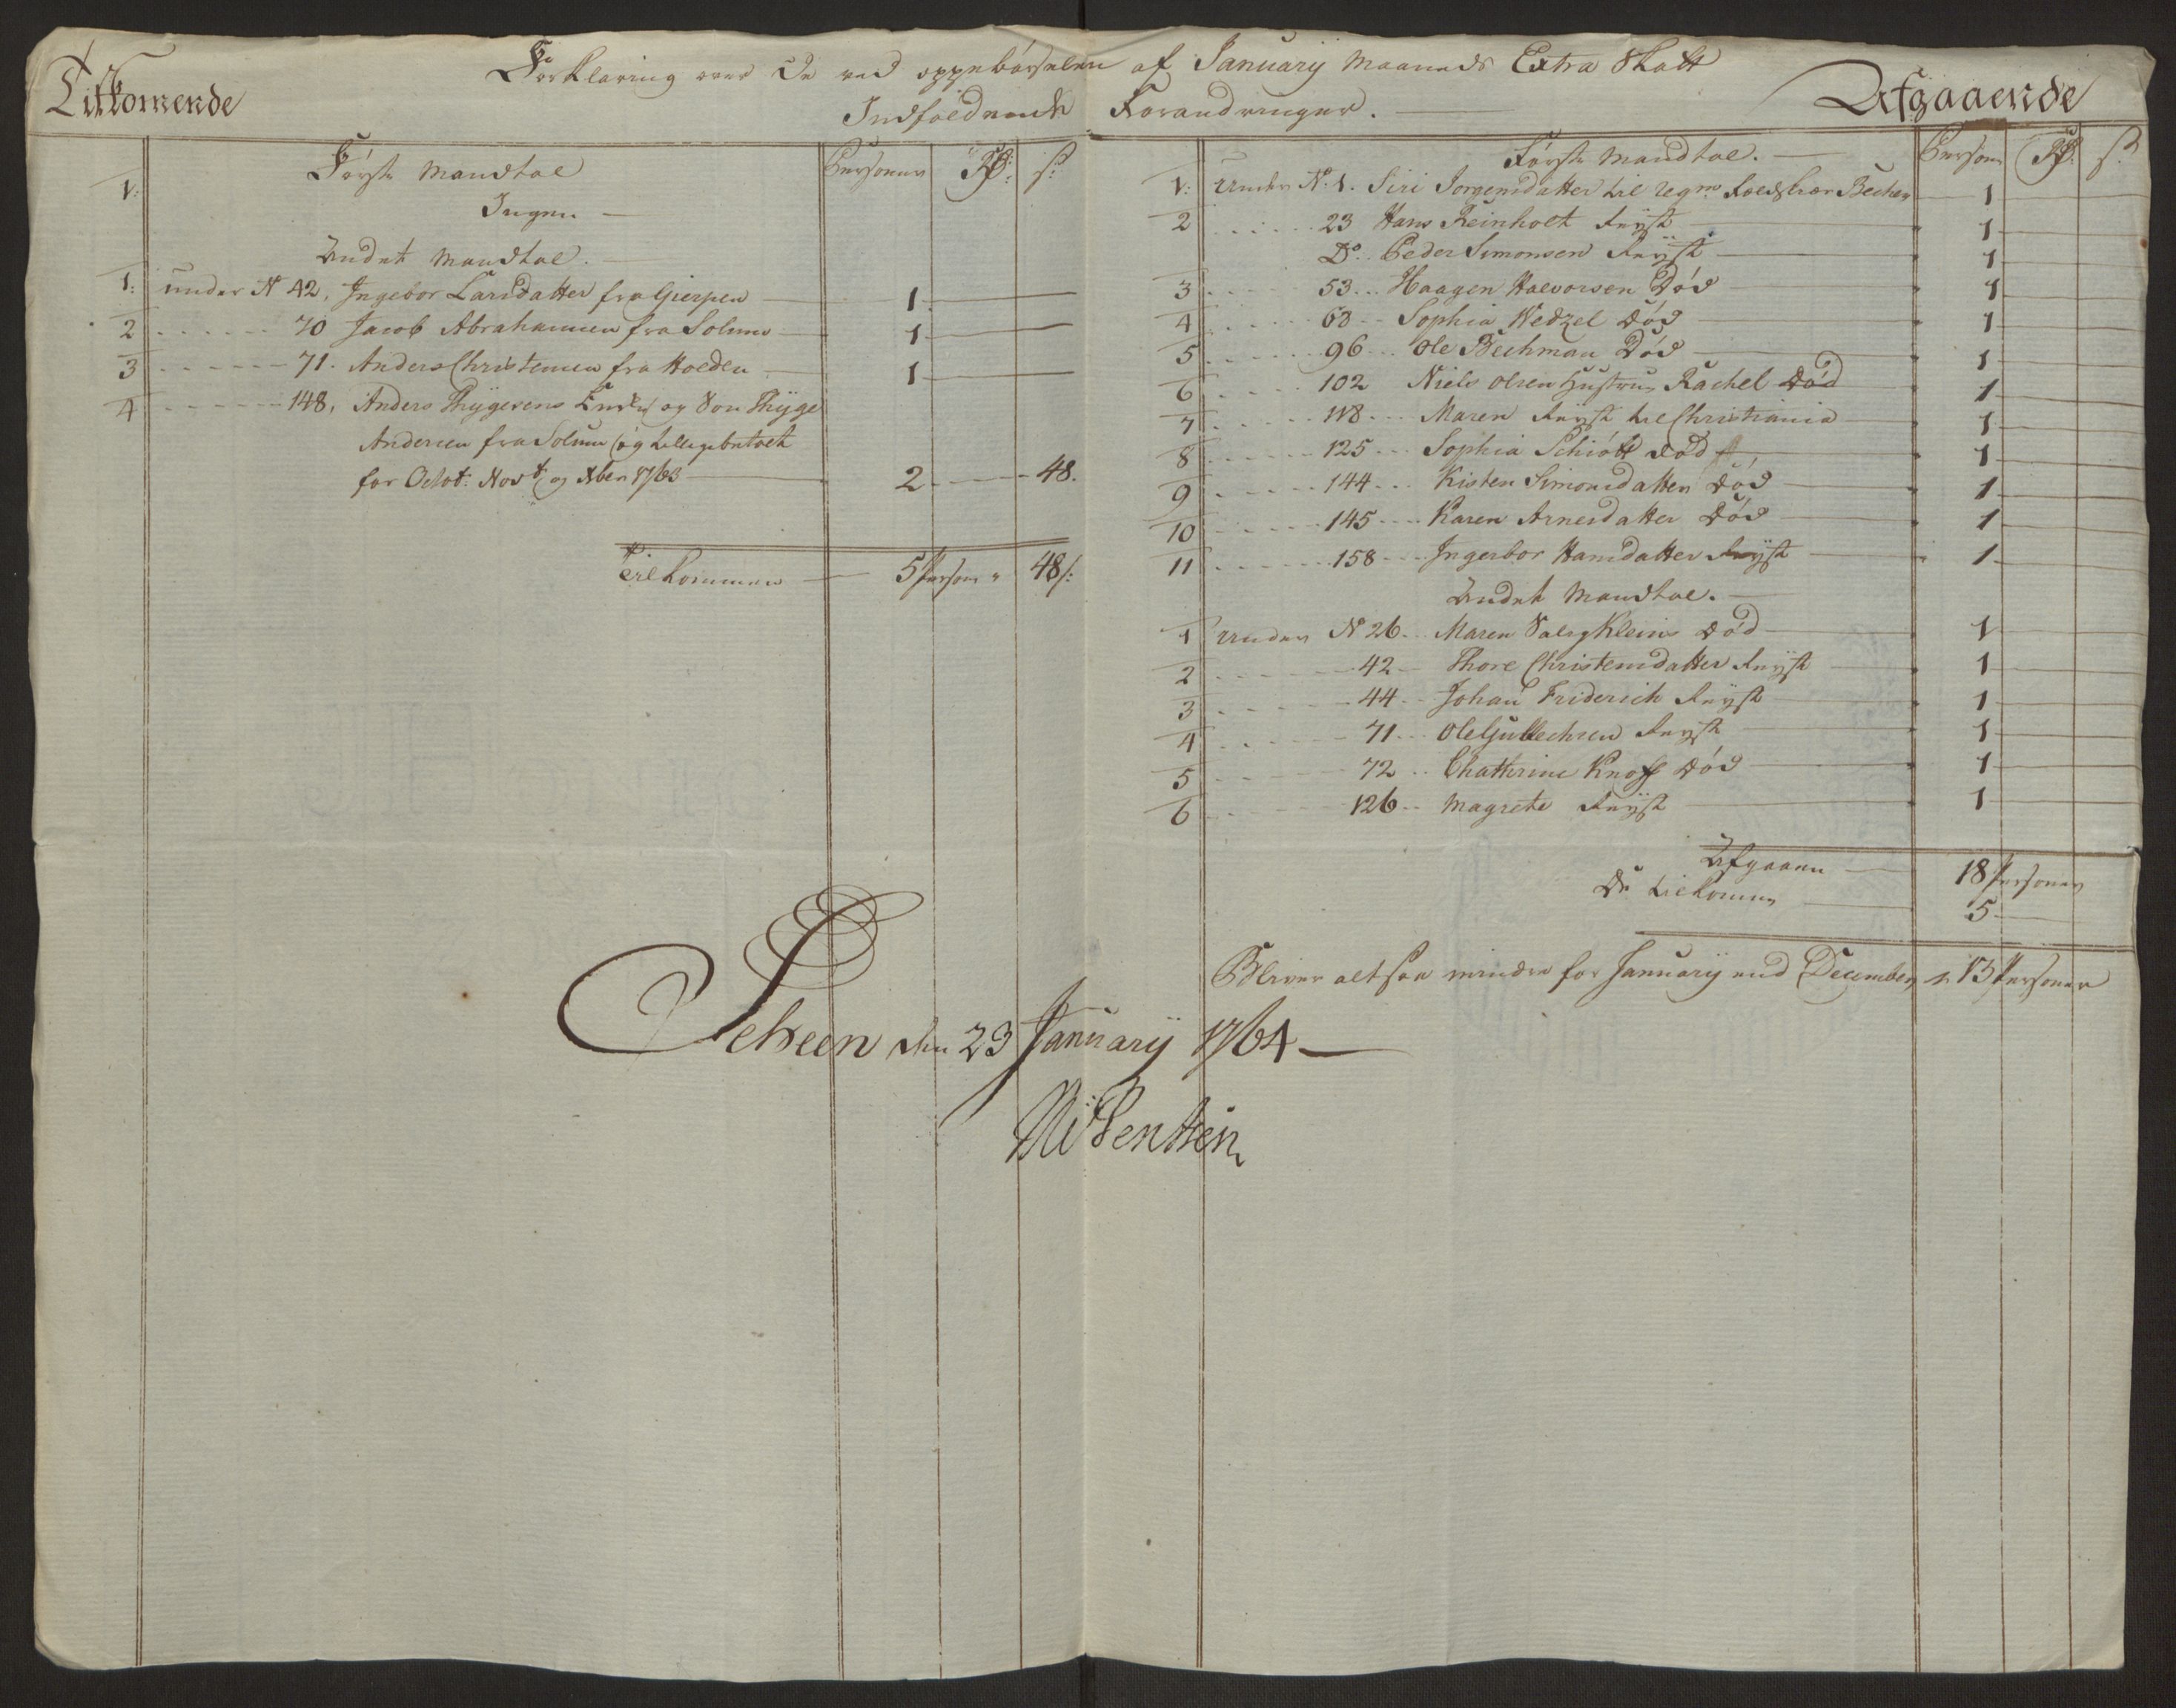 Tilkomende
Forklaring over De ved oppebørselen af January Maaneds Extra Skatt
Indfaldende Forandringer.
Afgaaende
Første Mandtal Personer Rd: s:
1: Ingen
Andet Mandtal.
1: under N 42, Ingebor Larsdatter fra Gierpen 1
2 70 Jacob Abrahamsen fra Solum 1
3 71. Anders Christensen fra Holden 1
4 148, Anders Thygesens Enke og Søn Thyge
Andersen fra Solum og tillige betalt
for Octob: Novb og Xber 1763 2 48.
Tilkommen 5 Person 48 s:
Første Mandtal. Person Rd: s:
1: Under No: 1. Siri Jorgensdatter til Regm: Feldskiær Becher 1
2 23 Hans Reinholt Reyst 1
Do. Peder Simonsen Reyst 1
3 53 Haagen Halvorsen Død 1
4 63 Sophia Wedzel Død 1
5 96 Ole Bechman Død 1
6 102 Niels Olsen Hustrue Rachel Død 1
7 118 Maren Reyst til Christiania 1
8 125 Sophia Schiøtt Død 1
9 144 Kisten Simonsdatter Død 1
10 145 Karen Arnesdatter Død 1
11 158 Ingerbor Hansdatter Reyst 1
Andet Mandtal.
1 Under N 26. Maren Salig Kleins Død 1
2 42 Thore Christensdatter Reyst 1
3 44 Johan Friderich Reyst 1
4 71 Ole Gullechsen Reyst 1
5 72 Chatherine Knoff Død 1
6 126 Magrete Reyst 1
Afgaaen 18 Personer
De tilkomne 5
Bliver altsaa mindre for January end December 13 Personer
Scheen den 23 January 1764